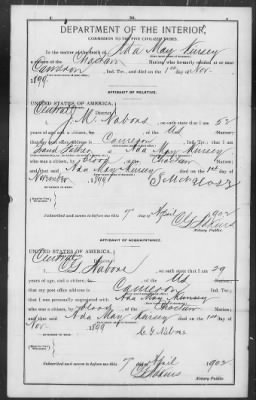 DEPARTMENT OF THE INTERIOR,
COMMISSION TO THE FIVE CIVILIZED TRIBES.
In the matter of the death of Ada May Kersey
a citizen of the Choctaw Nation, who formerly resided at or near
Cameron, Ind. Ter., and died on the 1st day of Nov.
1899
AFFIDAVIT OF RELATIVE.
UNITED STATES OF AMERICA,
Central District
I, J. M. Nabors, on oath state that I am 52
years of age, and a citizen, of the U S Nation;
that my post office address is Cameron, Ind. Ter.; that I am
Grand Father of Ada May Kersey
who was a citizen, by blood, of the Choctaw Nation;
and that said Ada May Kersey died on the 1st day of
November, 1899
Subscribed and sworn to before me this 7 day of April 1902
Notary Public.
AFFIDAVIT OF ACQUAINTANCE.
UNITED STATES OF AMERICA,
Central District
I, C. G. Nabors, on oath state that I am 29
years of age, and a citizen of the U S Nation;
that my post office address is Cameron, Ind. Ter.;
that I was personally acquainted with Ada May Kersey
who was a citizen, by blood, of the Choctaw Nation;
and that said Ada May Kersey died on the 1st day of
Nov., 1899
C G Nabors
Subscribed and sworn to before me this 7 day of April 1902
Notary Public.